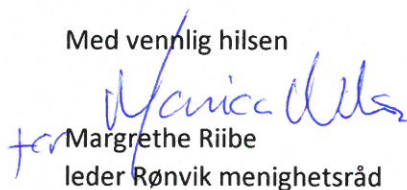 Med vennlig hilsen
for Margrethe Riibe
leder Rønvik menighetsråd